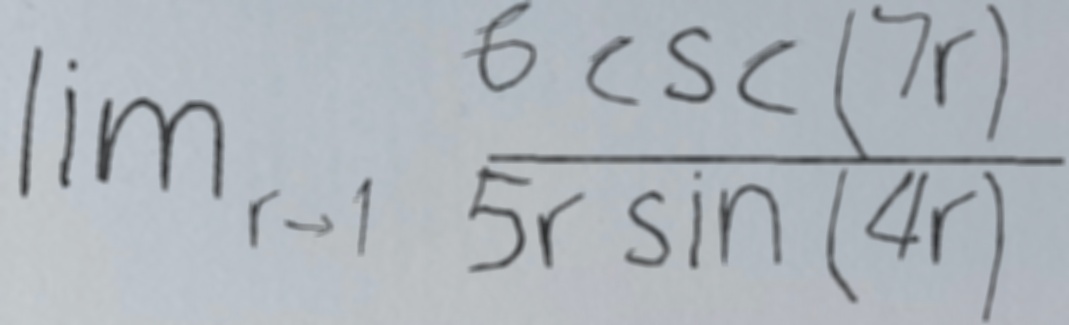 lim r→1 6 csc(7r) / 5r sin(4r)